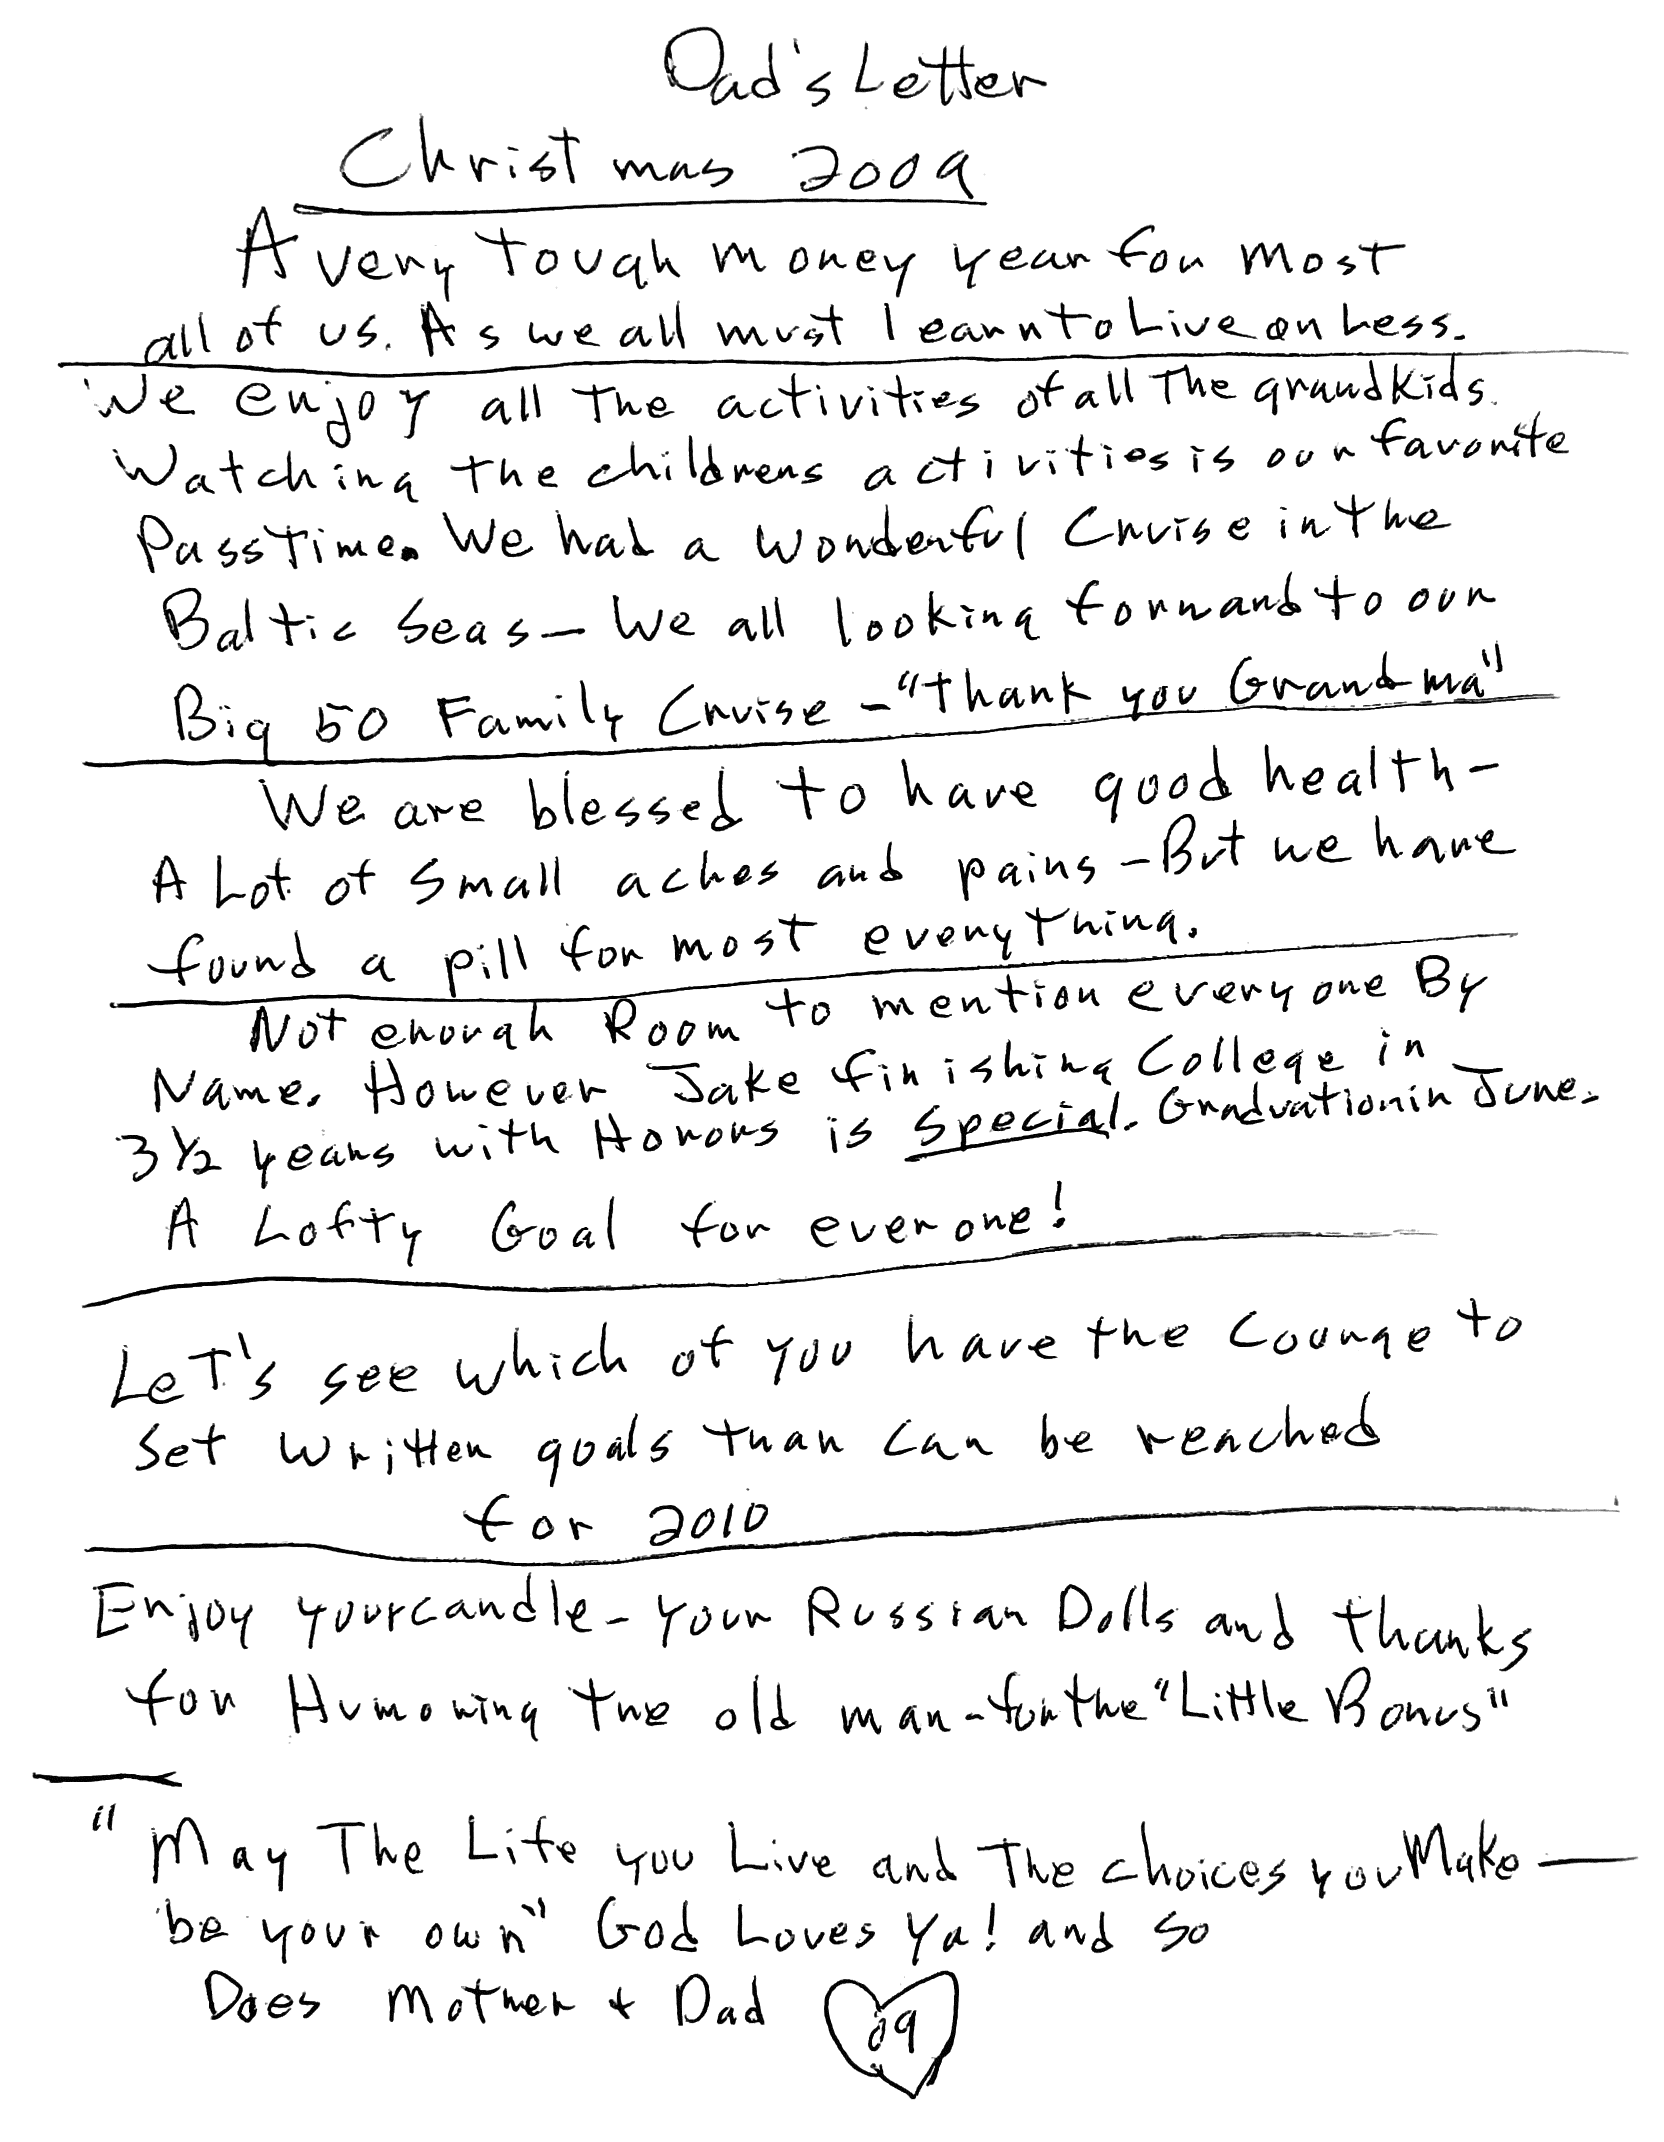 Dad's Letter
Christmas 2009
A very Tough money year for most
all of us. As we all must learn to Live on Less.
We enjoy all The activities of all The grandkids.
Watching the childrens activities is our favorite
PassTime. We had a wonderful Cruise in the
Baltic Seas - We all looking forward to our
Big 50 Family Cruise - "Thank you Grandma"
We are blessed to have good health -
A Lot of small aches and pains - But we have
found a pill for most everything.
Not enough Room to mention everyone By
Name. However Jake finishing College in
3 1/2 years with Honors is Special. Graduation in June.
A Lofty Goal for everone!
LeT's see which of you have the Courage to
Set written goals than can be reached
for 2010
Enjoy your candle - your Russian Dolls and thanks
for Humoring the old man - for the "Little Bonus"
"May The Life you Live and The choices you Make —
be your own" God Loves Ya! and So
Does Mother + Dad 09